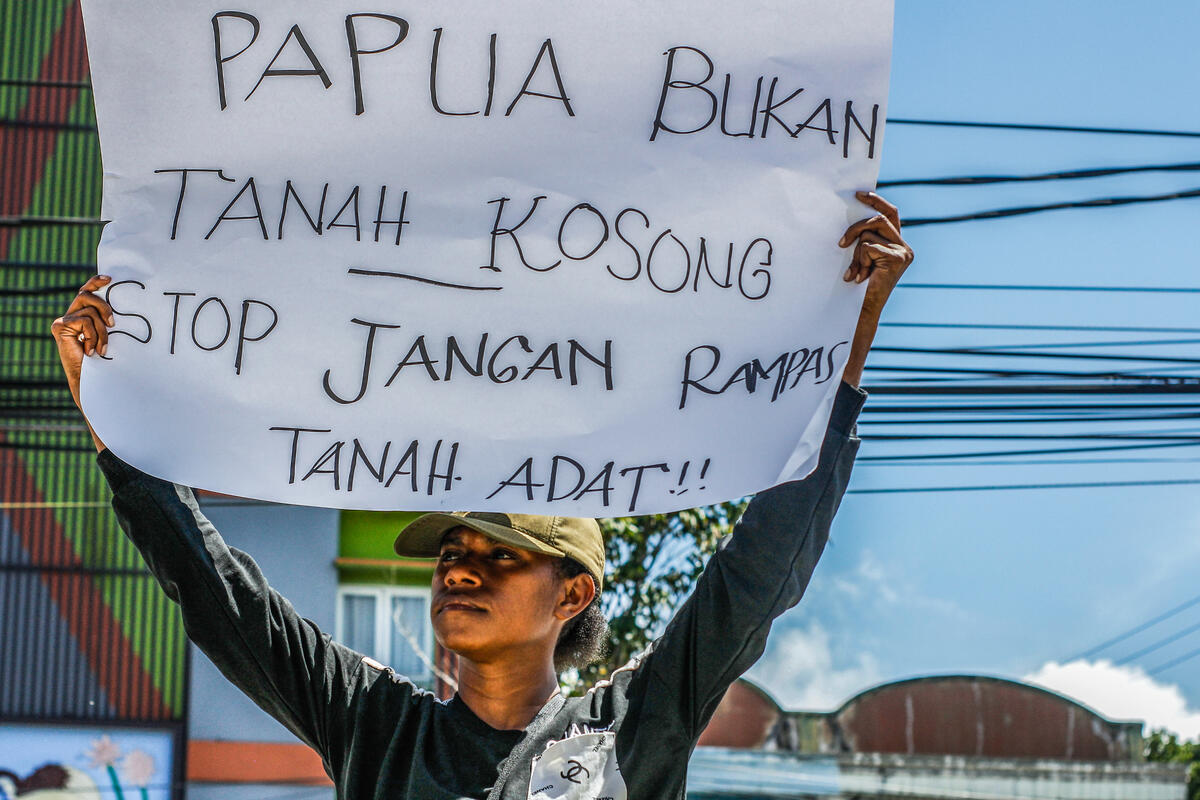 PAPUA BUKAN
TANAH KOSONG
STOP JANGAN RAMPAS
TANAH ADAT!!
CHANEL